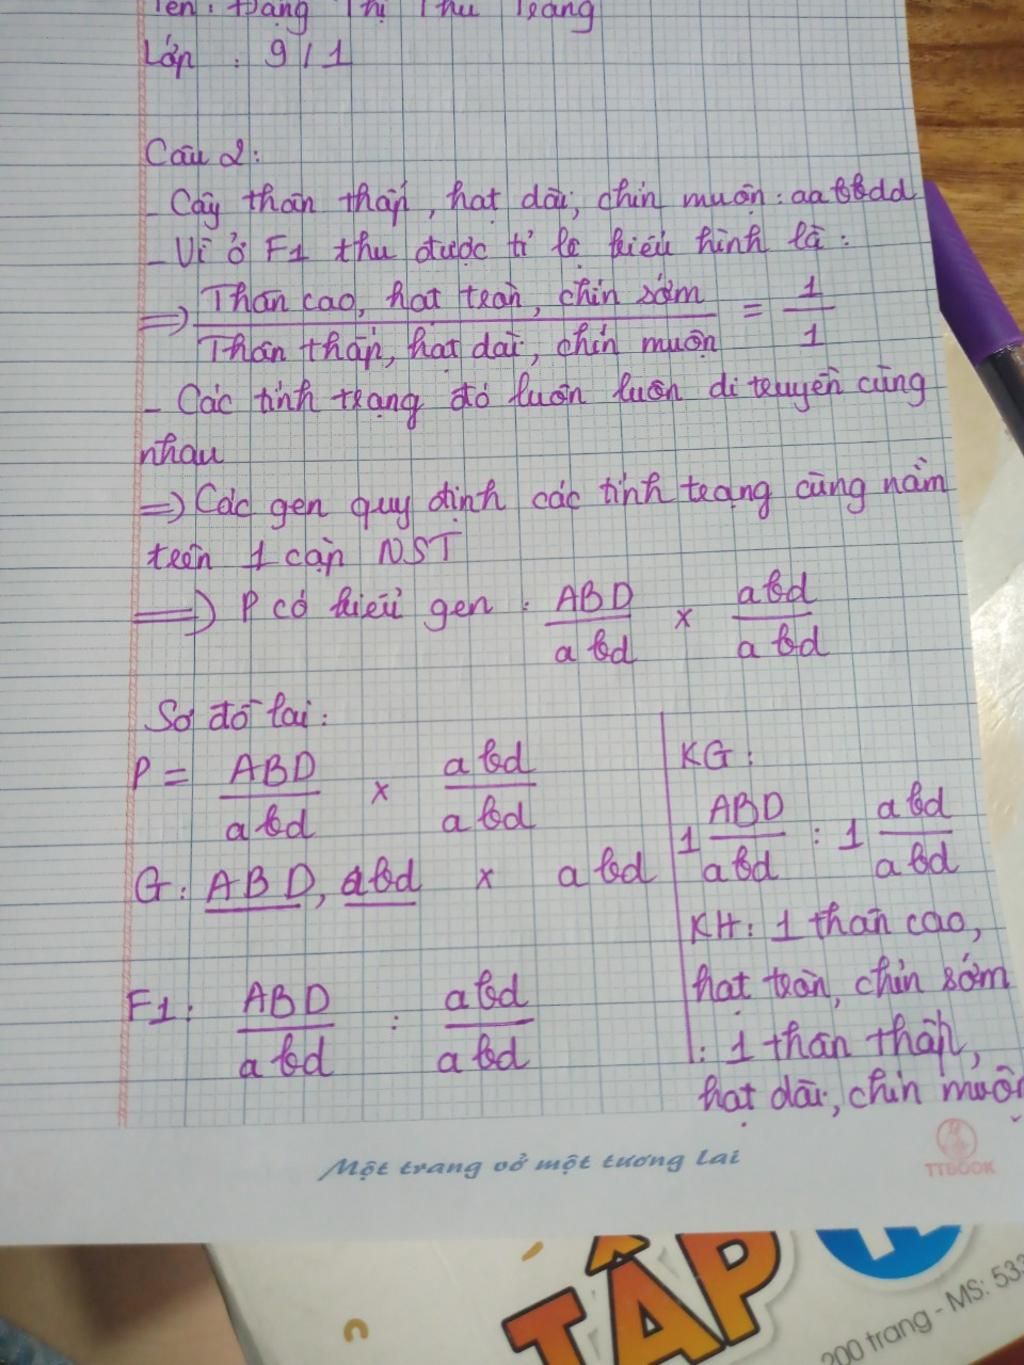 Tên: Đặng Thị Thu Trang
Lớp : 9/1
Câu 2:
- Cây thân thấp, hạt dài, chín muộn: aabbdd
- Vì ở F1 thu được tỉ lệ kiểu hình là:
=> Thân cao, hạt tròn, chín sớm / Thân thấp, hạt dài, chín muộn = 1/1
- Các tính trạng đó luôn luôn di truyền cùng
nhau
=> Các gen quy định các tính trạng cùng nằm
trên 1 cặp NST
=> P có kiểu gen : ABD/abd x abd/abd
Sơ đồ lai:
P = ABD/abd x abd/abd
G: ABD, abd x abd
F1: ABD/abd : abd/abd
KG:
1 ABD/abd : 1 abd/abd
KH: 1 thân cao,
hạt tròn, chín sớm
: 1 thân thấp,
hạt dài, chín muộn
Một trang vở một tương lai
TTBOOK
TẬP
200 trang - MS: 533